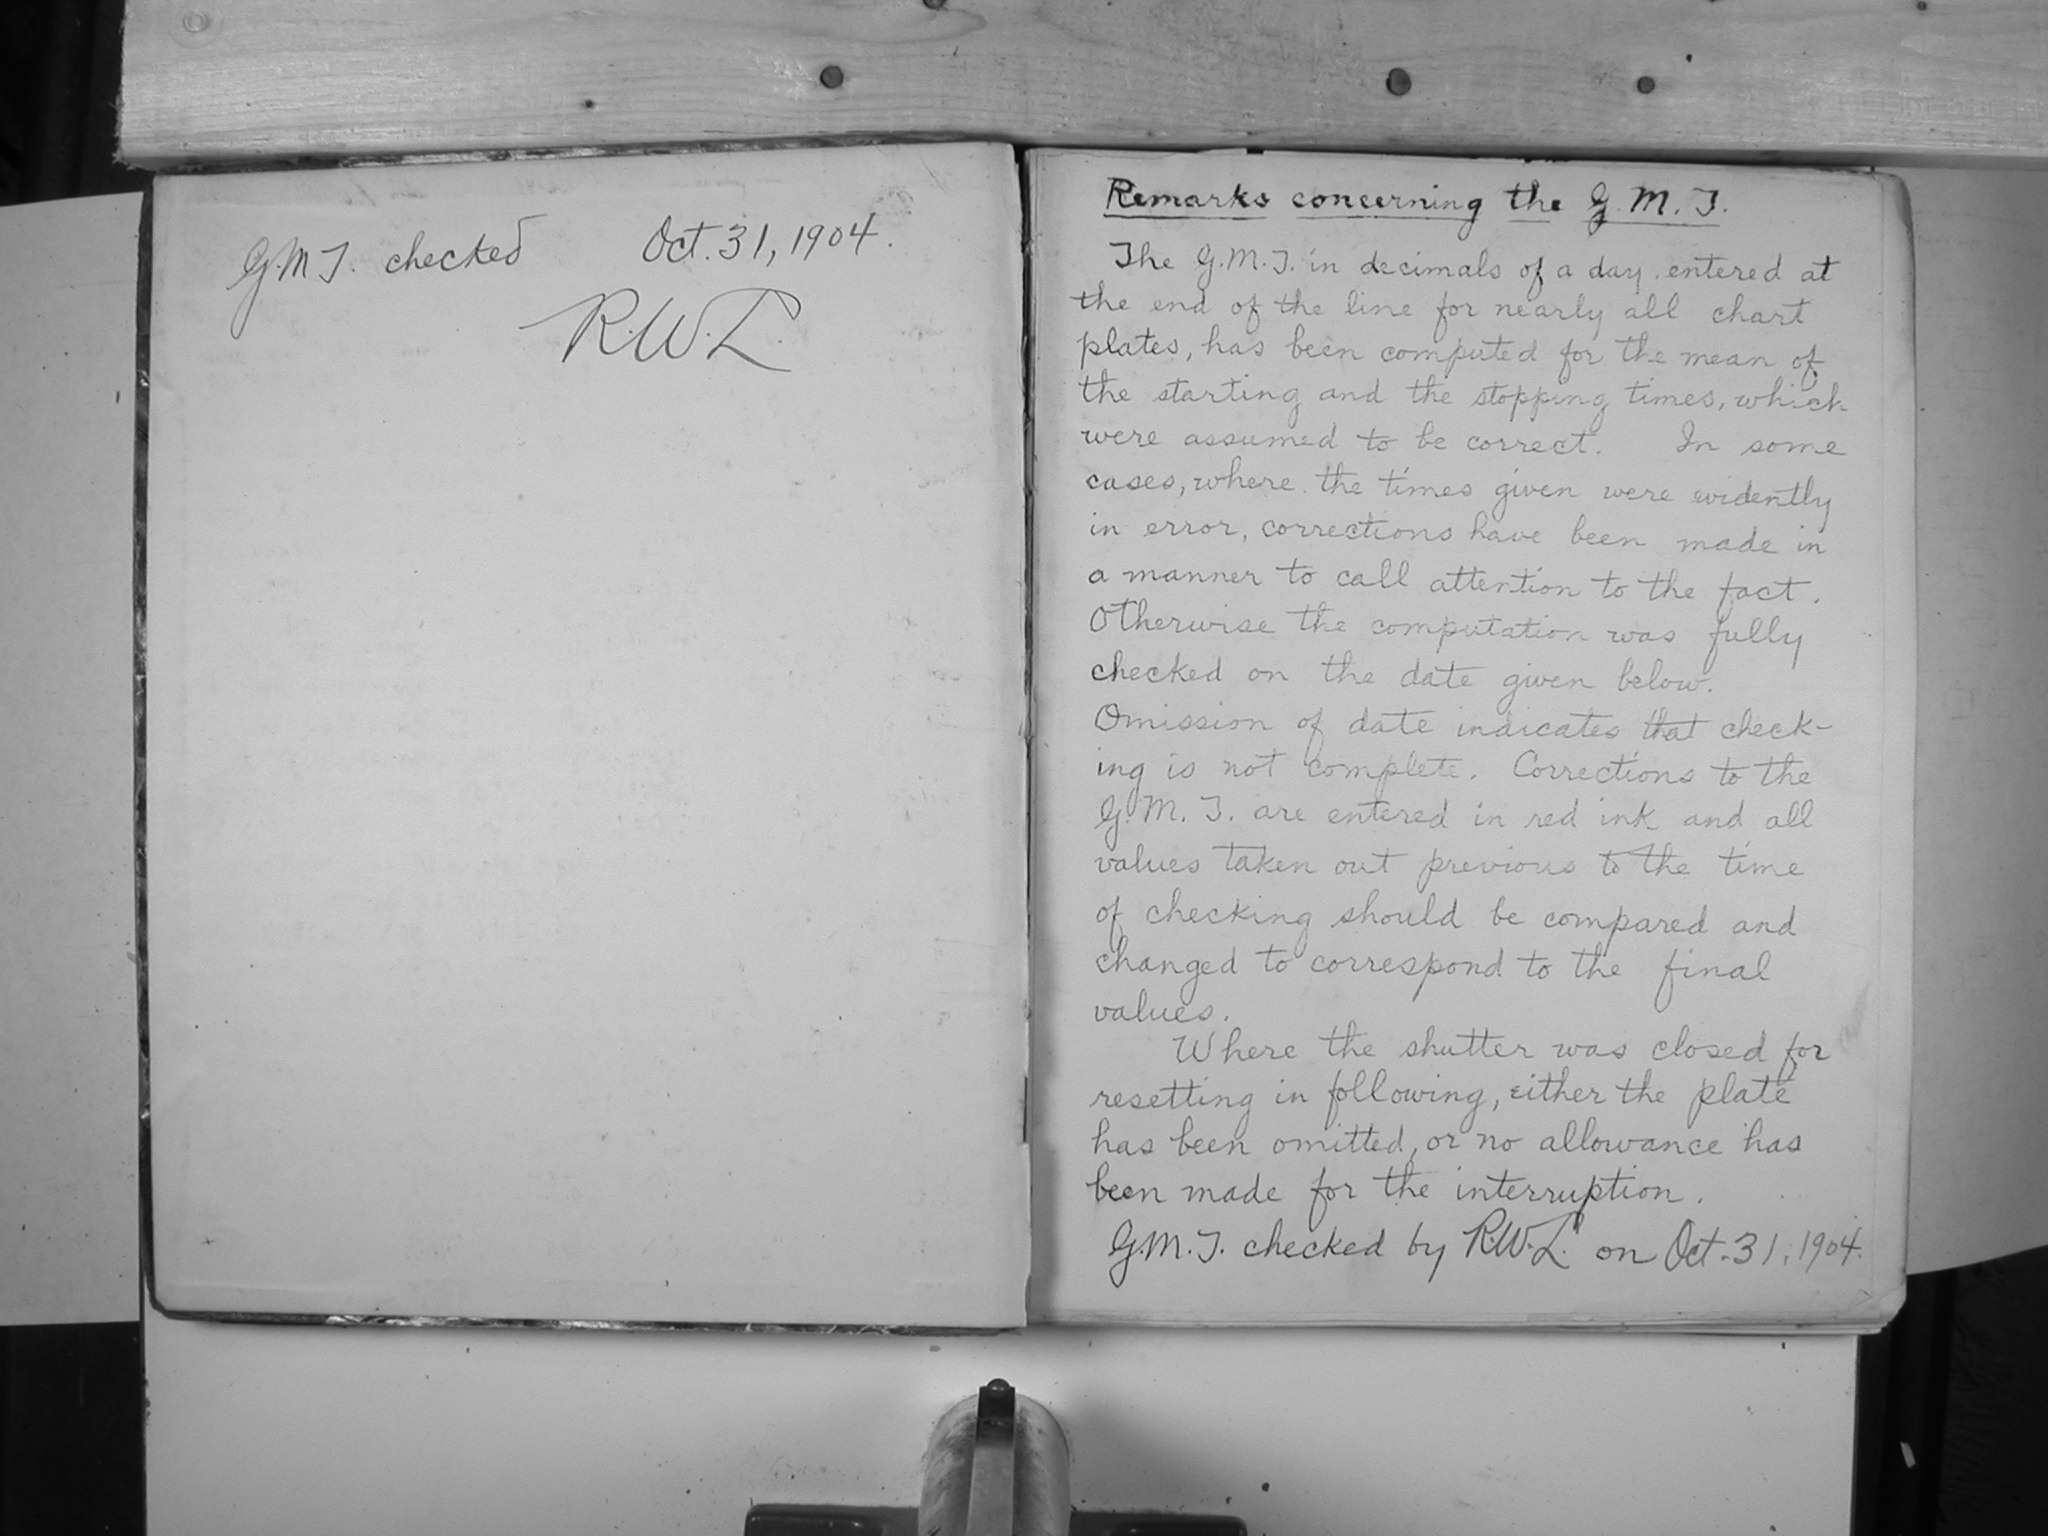 G.M.T. checked Oct. 31, 1904.
R.W.L.
Remarks concerning the G.M.T.
The G.M.T. in decimals of a day entered at
the end of the line for nearly all chart
plates, has been computed for the mean of
the starting and the stopping times, which
were assumed to be correct. In some
cases, where the times given were evidently
in error, corrections have been made in
a manner to call attention to the fact.
Otherwise the computation was fully
checked on the date given below.
Omission of date indicates that check-
ing is not complete. Corrections to the
G.M.T. are entered in red ink and all
values taken out previous to the time
of checking should be compared and
changed to correspond to the final
values.
Where the shutter was closed for
resetting in following, either the plate
has been omitted, or no allowance has
been made for the interruption.
G.M.T. checked by R.W.L. on Oct. 31, 1904.